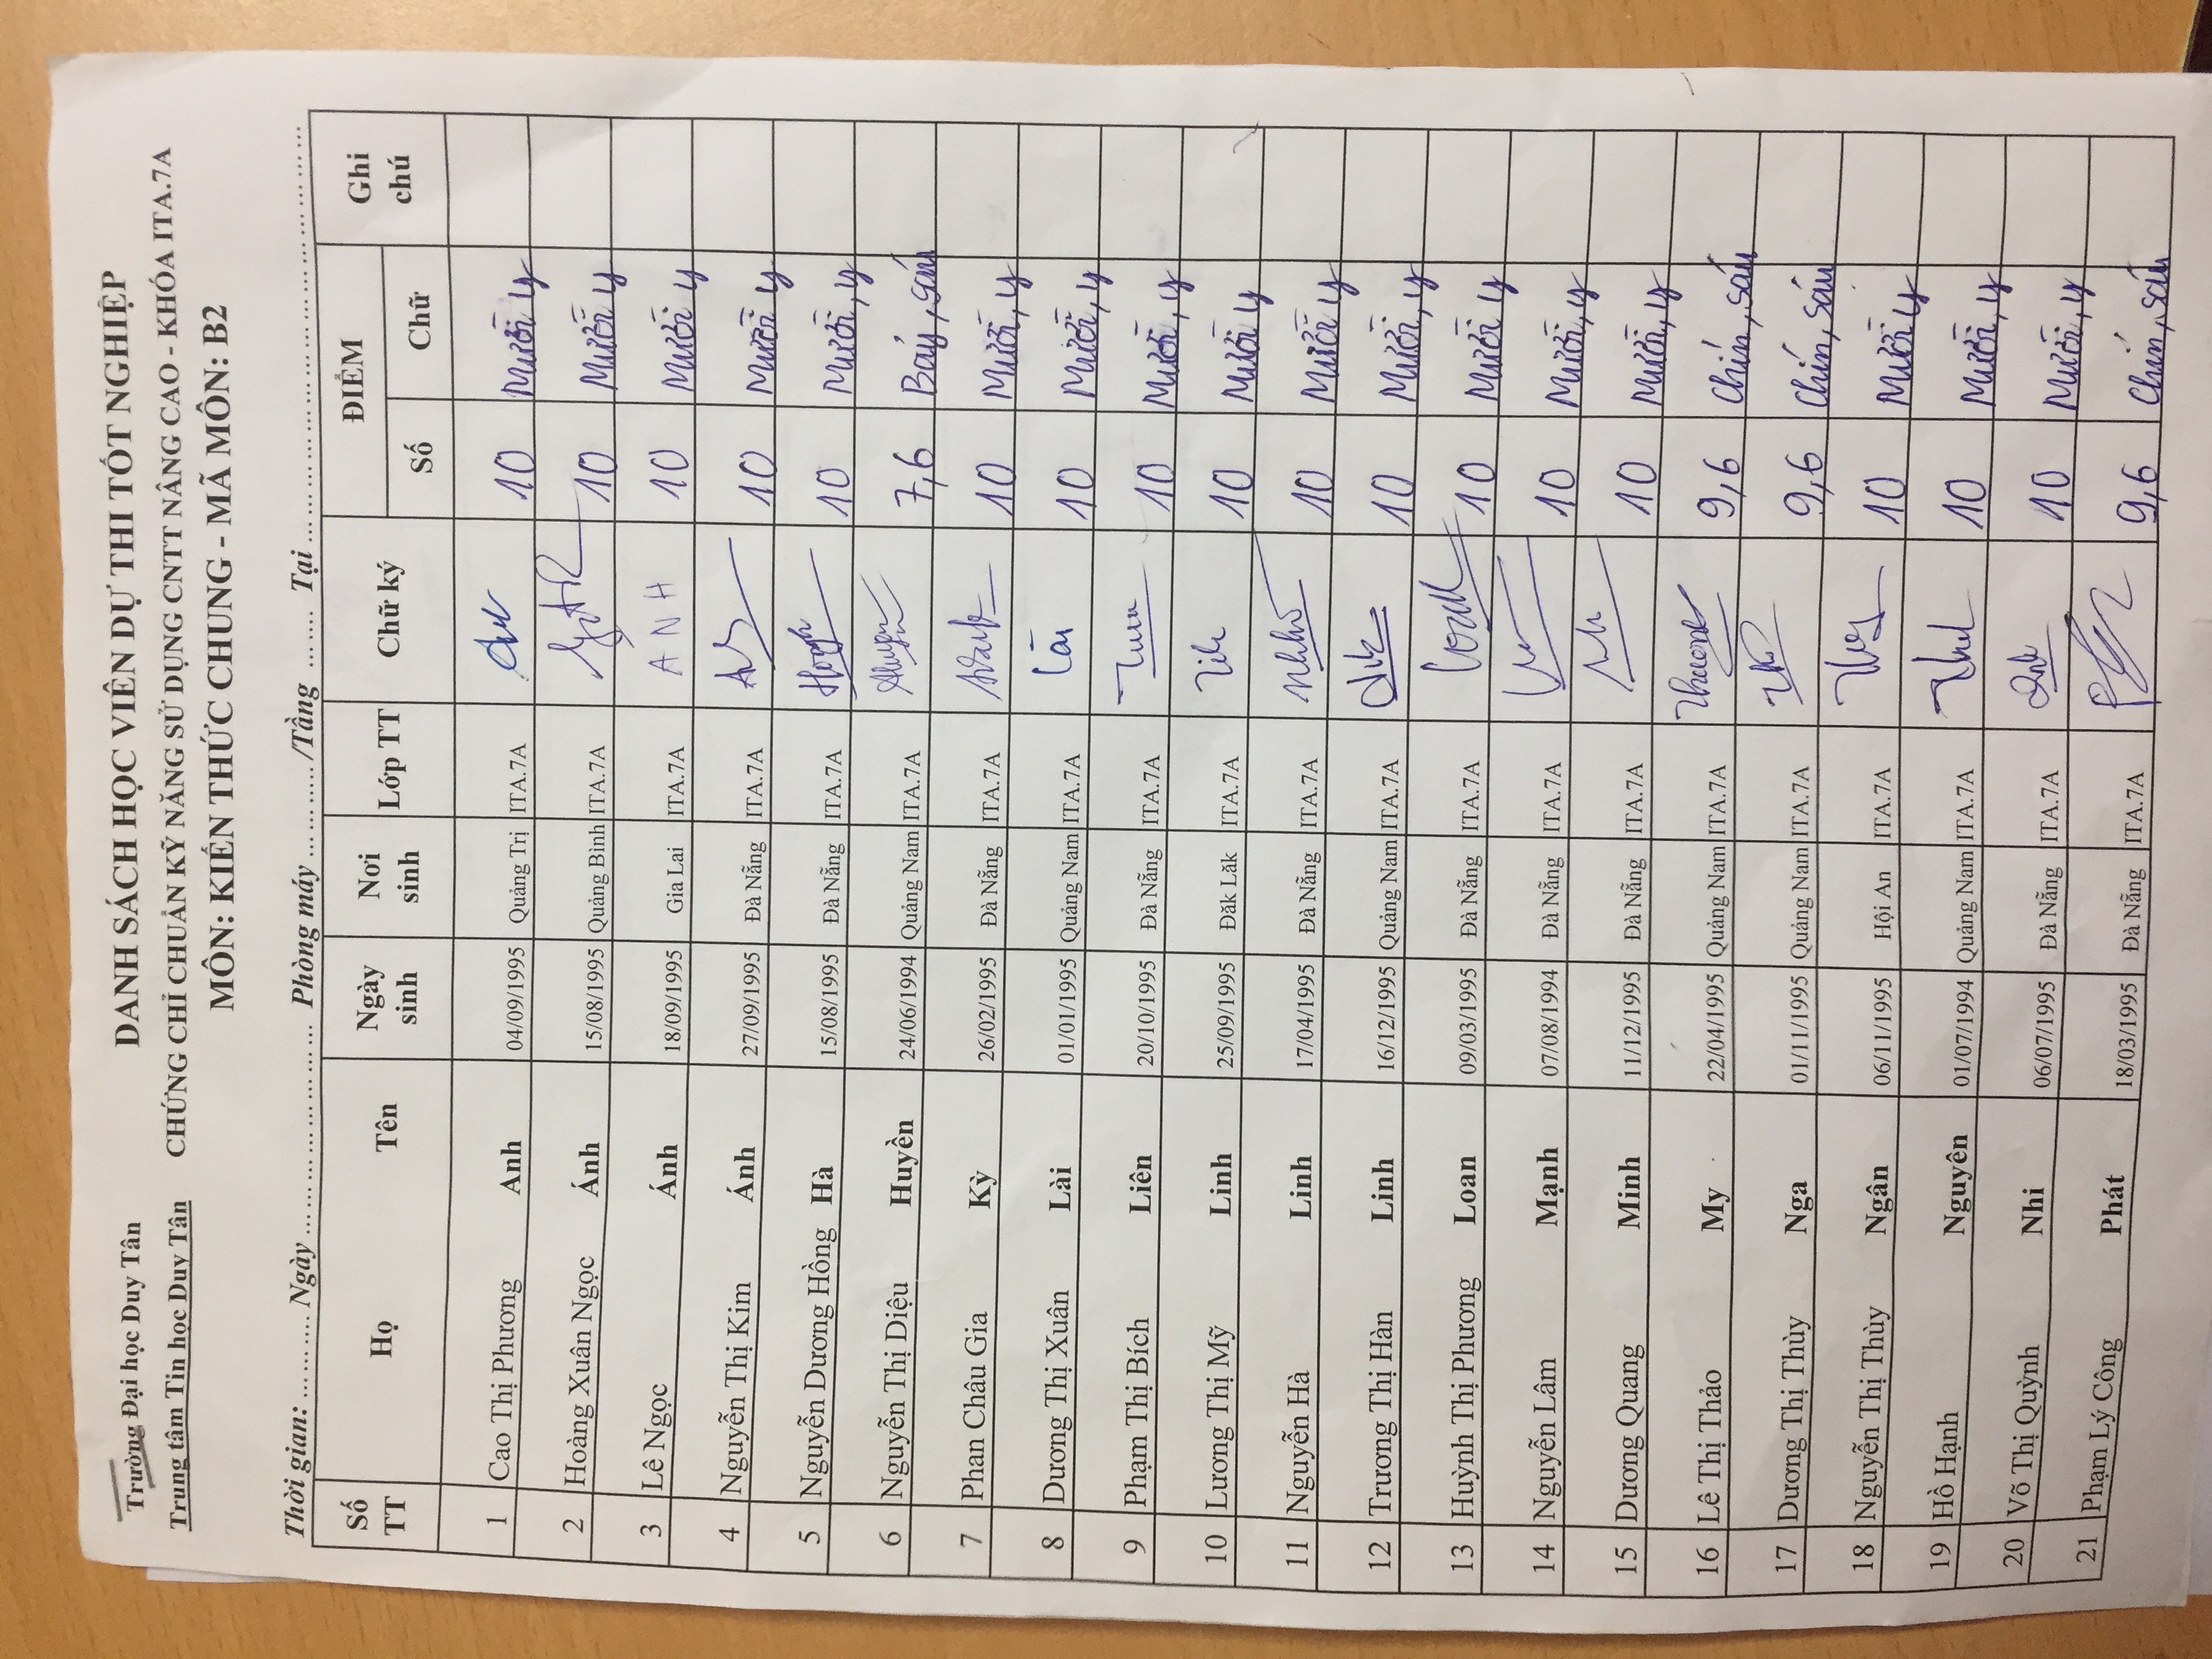 Trường Đại học Duy Tân DANH SÁCH HỌC VIÊN DỰ THI TỐT NGHIỆP
Trung tâm Tin học Duy Tân CHỨNG CHỈ CHUẨN KỸ NĂNG SỬ DỤNG CNTT NÂNG CAO - KHÓA ITA.7A
MÔN: KIẾN THỨC CHUNG - MÃ MÔN: B2
Thời gian: ......... Ngày ........................ Phòng máy ........../Tầng ....... Tại ........................
Số TT Họ Tên Ngày sinh Nơi sinh Lớp TT Chữ ký ĐIỂM Ghi chú
Số Chữ
1 Cao Thị Phương Anh 04/09/1995 Quảng Trị ITA.7A 10 Mười y
2 Hoàng Xuân Ngọc Ánh 15/08/1995 Quảng Bình ITA.7A 10 Mười y
3 Lê Ngọc Ánh 18/09/1995 Gia Lai ITA.7A ANH 10 Mười y
4 Nguyễn Thị Kim Ánh 27/09/1995 Đà Nẵng ITA.7A 10 Mười y
5 Nguyễn Dương Hồng Hà 15/08/1995 Đà Nẵng ITA.7A 10 Mười, y
6 Nguyễn Thị Diệu Huyền 24/06/1994 Quảng Nam ITA.7A Huyền 7,6 Bảy, sáu
7 Phan Châu Gia Kỳ 26/02/1995 Đà Nẵng ITA.7A 10 Mười, y
8 Dương Thị Xuân Lài 01/01/1995 Quảng Nam ITA.7A Lài 10 Mười, y
9 Phạm Thị Bích Liên 20/10/1995 Đà Nẵng ITA.7A 10 Mười, y
10 Lương Thị Mỹ Linh 25/09/1995 Đăk Lăk ITA.7A 10 Mười y
11 Nguyễn Hà Linh 17/04/1995 Đà Nẵng ITA.7A 10 Mười y
12 Trương Thị Hàn Linh 16/12/1995 Quảng Nam ITA.7A 10 Mười, y
13 Huỳnh Thị Phương Loan 09/03/1995 Đà Nẵng ITA.7A 10 Mười, y
14 Nguyễn Lâm Mạnh 07/08/1994 Đà Nẵng ITA.7A 10 Mười, y
15 Dương Quang Minh 11/12/1995 Đà Nẵng ITA.7A 10 Mười, y
16 Lê Thị Thảo My 22/04/1995 Quảng Nam ITA.7A 9,6 Chín, sáu
17 Dương Thị Thùy Nga 01/11/1995 Quảng Nam ITA.7A 9,6 Chín, sáu
18 Nguyễn Thị Thùy Ngân 06/11/1995 Hội An ITA.7A 10 Mười y
19 Hồ Hạnh Nguyên 01/07/1994 Quảng Nam ITA.7A 10 Mười, y
20 Võ Thị Quỳnh Nhi 06/07/1995 Đà Nẵng ITA.7A 10 Mười, y
21 Phạm Lý Công Phát 18/03/1995 Đà Nẵng ITA.7A 9,6 Chín, sáu